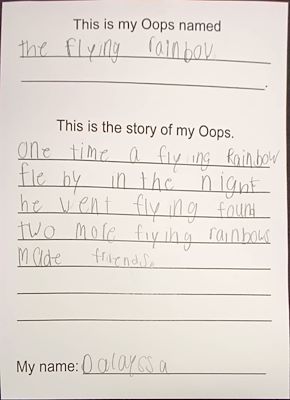 This is my Oops named
the flying rainbow
This is the story of my Oops.
One time a flying Rainbow
fle by in the night
he went flying found
two more flying rainbows
made friends.
My name: Dalayssa